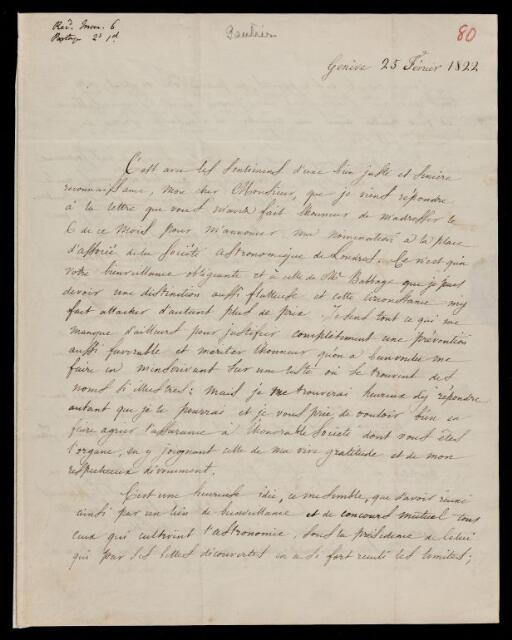 Recd. Mar. 6
Postage 2s 1d
Gautier
80
Genève 25 Février 1822
C'est avec les sentimens d'une bien juste et sincère
reconnaissance, mon cher Monsieur, que je viens répondre
à la lettre que vous m'avez fait l'honneur de m'adresser le
6 de ce mois pour m'annoncer ma nomination à la place
d'associé de la Société astronomique de Londres. Ce n'est qu'à
votre bienveillance obligeante et à celle de Mr. Babbage que je puis
devoir une distinction aussi flatteuse et cette circonstance m'y
fait attacher d'autant plus de prix. Je sens tout ce qui me
manque d'ailleurs pour justifier complètement une prévention
aussi favorable et mériter l'honneur qu'on a bien voulu me
faire en m'inscrivant sur une liste où se trouvent des
noms si illustres: mais je me trouverai heureux d'y répondre
autant que je le pourrai et je vous prie de vouloir bien en
faire agréer l'assurance à l'honorable Société dont vous êtes
l'organe, en y joignant celle de ma vive gratitude et de mon
respectueux dévouement.
C'est une heureuse idée, ce me semble, que d'avoir réuni
ainsi par un lien de bienveillance et de concours mutuel tous
ceux qui cultivent l'astronomie, sous la présidence de celui
qui par ses belles découvertes en a si fort reculé les limites;